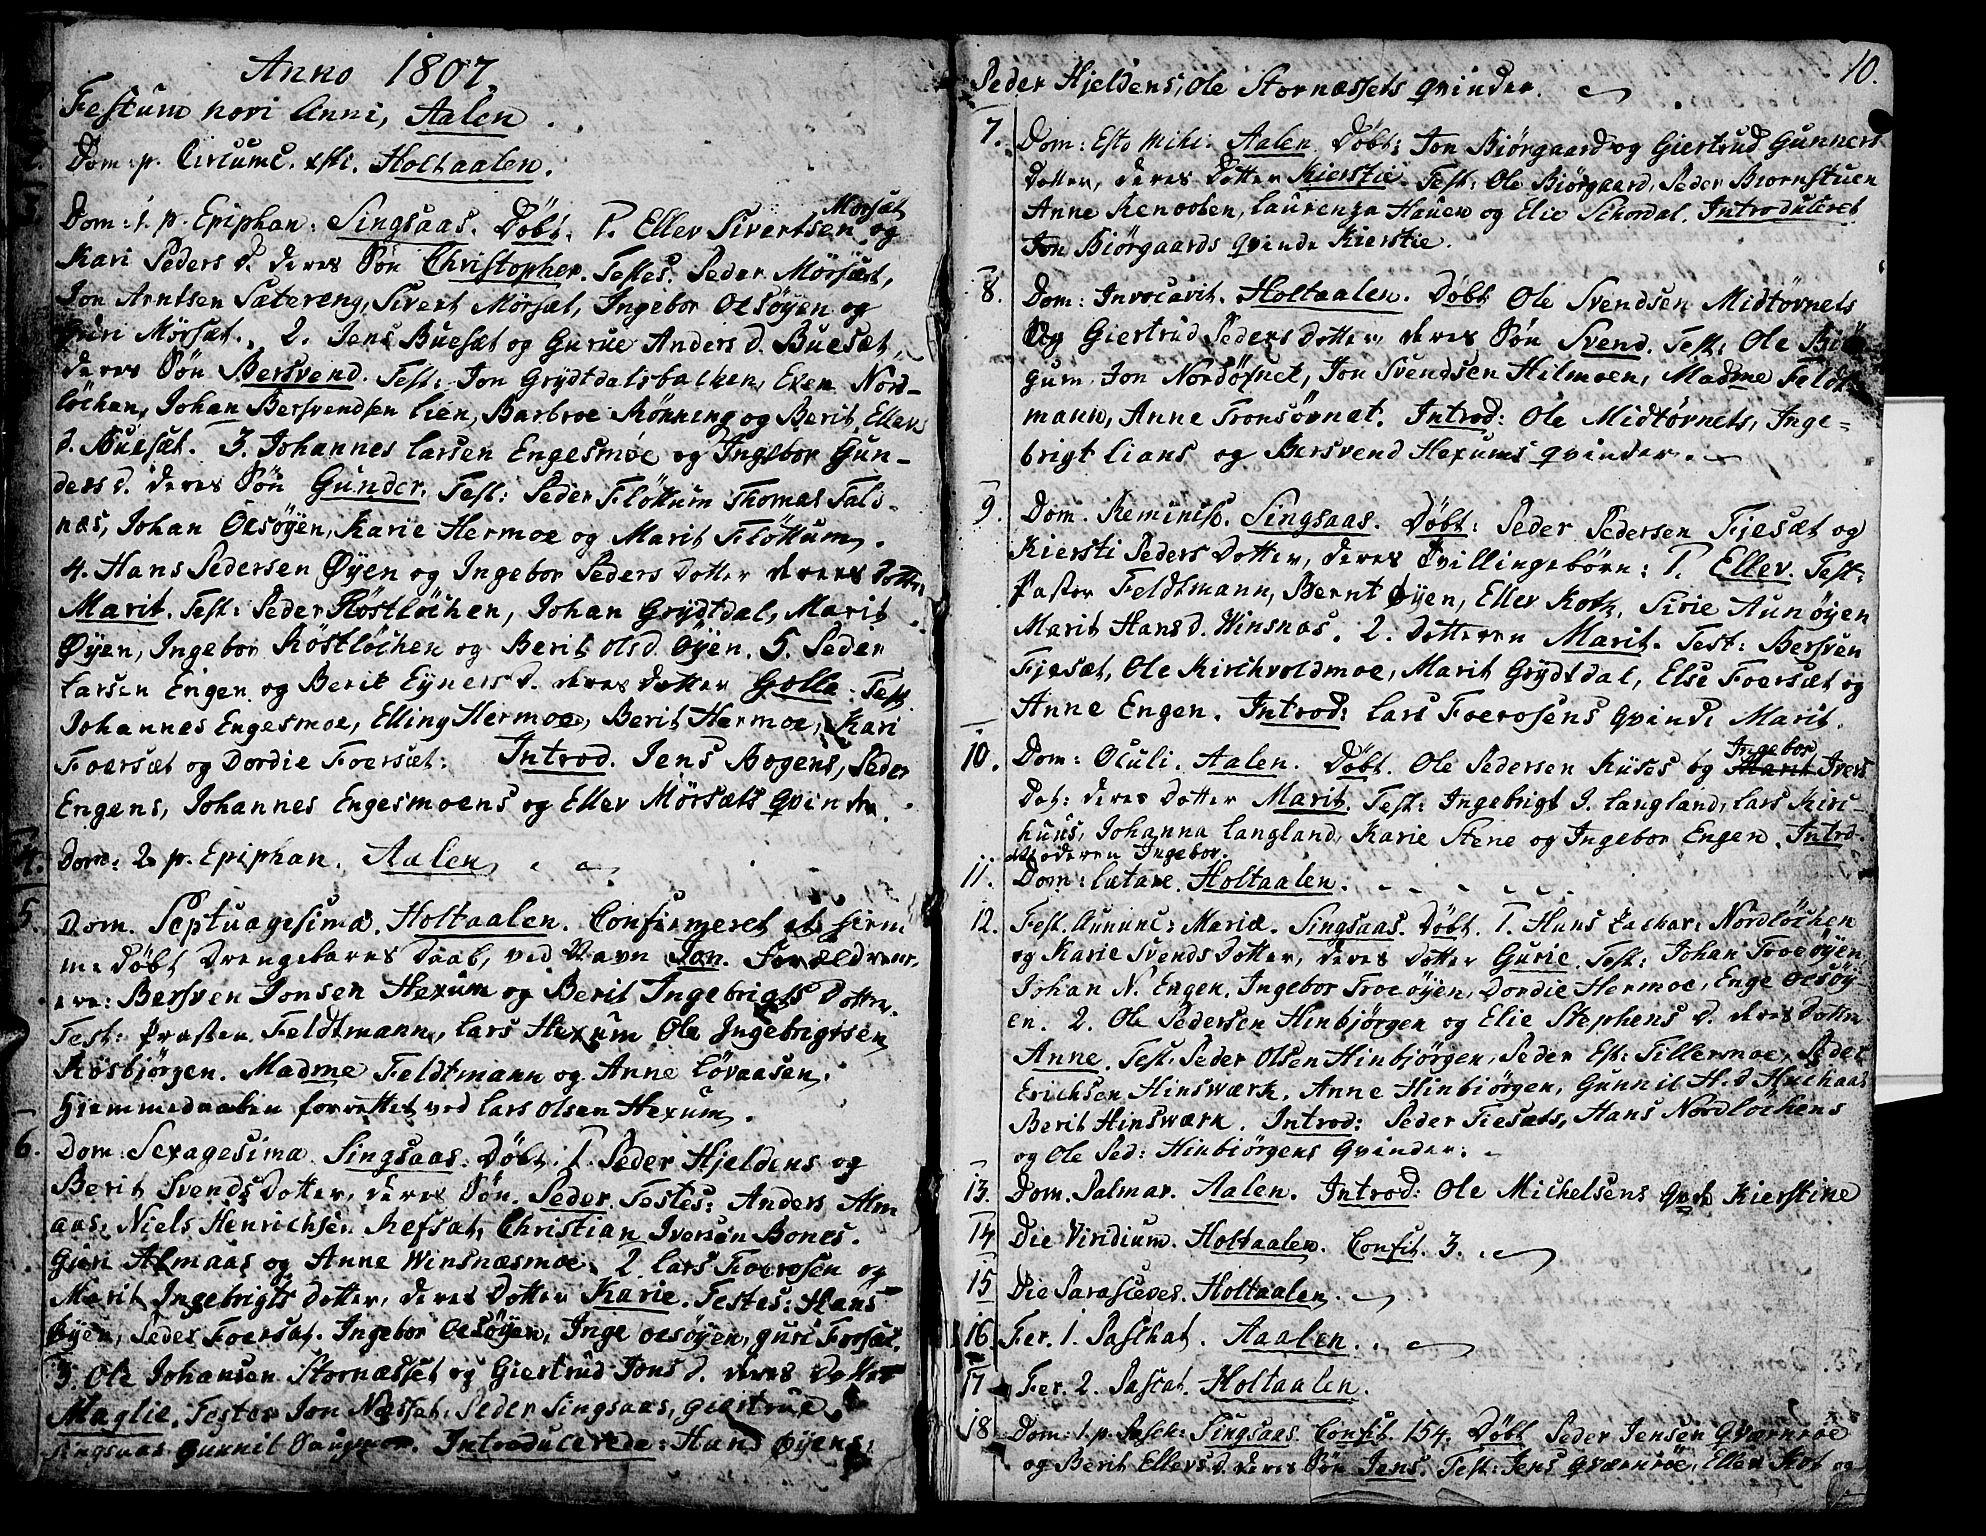 Anno 1807.
Festum novi Anni, Aalen
Dom: p. Circumc. xsti. Holtaalen.
Dom: 1. p. Epiphan: Singsaas. Døbt. 1. Ellev Sivertsen Morsæt og
Kari Peders d. deres Søn Christopher. Testes. Peder Mörsæt,
Jon Arntsen Sætereng, Sivert Mörsæt, Ingebor Oesöyen og
Guri Mörsæt. 2. Jens Buesæt og Gurue Anders d. Buesæt
deres Søn Bersvend. Test: Jon Grydtdalsbacken, Even Nord-
löchen, Johan Bersvendsen Lien, Barbroe Rønning og Berit Ellevs
d. Buesæt. 3. Johannes Larsen Engesmøe og Ingebor Gun-
ders d. deres Søn Gunder. Test: Peder Flöttum Thomas Fald-
næs, Johan Oesöyen, Karie Hermoe og Marit Flöttum.
4. Hans Pedersen Øyen og Ingebor Peders Dotter deres Dotter
Marit. Test: Peder Röstlöchen, Johan Grydtdal, Marit
Øyen, Ingebor Röstlöchen og Berit Olsd. Öyen. 5. Peder
Larsen Engen og Berit Eyners d. deres Dotter Golla: Test
Johannes Engesmoe, Elling Hermoe, Berit Hermoe, Kari
Foersæt og Dordie Foersæt: Introd. Jens Bogens, Peder
Engens, Johannes Engesmoens og Ellev Mörsæts qvinder.
4. Dom: 2. p. Epiphan. Aalen
5. Dom. Septuagesima. Holtaalen. Confirmeret et hiem
me døbt Drengebarns Daab, ved Navn Jon. Forældrene
ere: Bersven Jonsen Hexum og Berit Ingebrigts Dotter.
Test: Præsten Feldtmann, Lars Hexum Ole Ingebrigtsen
Røsbjörgen. Madme Feldtmann og Anne Løvaasen.
Hjemmedaaben forrettet ved Lars Olsen Hexum.
6. Dom: Sexagesima. Singsaas. Døbt. 1. Peder Hjeldens og
Berit Svends Dotter, deres Søn. Peder. Testes: Anders Alm
aas: Niels Henrichsen Refsæt, Christian Iversen Bones.
Guri Almaas og Anne Winsnæsmoe. 2 Lars Foerosen og
Marit Ingebrigts Dotter, deres Dotter Karie. Testes: Hans
Øyen, Peder Foersæt. Ingebor Oesöyen, Inge Oesöyen, guri Forsæt.
3. Ole Johansen Stornæsset og Giertrud Jons d. deres Dotter
Maglie. Testes Jon Næsset, Peder Singsaas, giertrue
Singsaas gunnil. Introducerede: Hans Øyens
10.
Peder Hjeldens, Ole Stornæssets qvinder.
7. Dom: Esto mihi: Aalen. Døbt: Jon Biörgaard og Giertrud Gunners
Dotter, deres Dotter Kierstie. Test: Ole Biörgaard, Peder Biornstuen
Anne Renoolen, Laurenza Hauen og Elie Schordal. Introduceret
Jon Biörgaards qvinde Kierstie.
8. Dom: Invocavit. Holtaalen. Døbt Ole Svendsen Midtövnets
Og Giertrud Peders Dotter deres Søn Svend. Test: Ole Biör
gum. Jon Nordöfnet, Jon Svendsen Hilmoen, Madme Feldt
mann, Anne Tronsövnet. Introd: Ole Midtövnets, Inge=
brigt Lians og Bersvend Hexums qvinder.
9. Dom. Reminisc. Singsaas. Døbt: Peder Pedersen Fjesæt og
Kiersti Peders Dotter, deres Tvillingebörn: 1. Ellev. Test:
Pastor Feldtmann, Bernt Øyen, Ellev Kotz, Sirie Aunöyen
Marit Hans d. Winsnas. 2. Datteren Marit. Test: Bersven
Fjesæt, Ole Kirchvoldmoe, Marit Grydtdal, Else Foersæt og
Anne Engen. Introd: Lars Foerosens qvinde Marit.
10. Dom: Oculi. Aalen. Døbt. Ole Pedersen Kuses og Marit Ingebor Ivers
Dot: deres Dotter Marit. Test: Ingebrigt J. Langland, Lars Kirc
huus, Johanna Langland, Karie Stene og Ingebor Engen. Introd.
Moderen Ingebor.
11. Dom: Lætare. Holtaalen.
12. Fest. Anunc: Mariæ. Singsaas. Døbt. 1. Hans Zachar: Nordlöchen
og Karie Svends Dotter, deres Dotter Gurie. Test: Johan Troeöyen
Johan N. Engen, Ingebor Troeöyen, Dordie Hermoe, Enge Oesöy-
en. 2. Ole Pedersen Hinbjörgen og Elie Stephens d. deres Dotter
Anne. Test: Peder Olsen Hinbjörgen, Peder Est: Tillermoe, Peder
Erichsen Hinsværk, Anne Hinbiörgen, Gunnil H. d
Berit Hinsværk. Introd: Peder Fiesæts, Hans Nordlöchens
og Ole Ped: Hinbiörgens Qvinder.
13. Dom. Palmar. Aalen. Introd: Ole Michelsens Kierstine
14 Die Viridium. Holtaalen. Confit. 3.
15 Die Parasceves. Holtaalen.
16. Fer. 1. Paschat. Aalen.
17 Fer. 2. Pascat. Holtaalen.
18. Dom: 1. p. Pasch: Singsaas. Confit. 154. Døbt Peder Jensen Qværnröe
og Berit Ellevs d. deres Søn Jens. Test: Jens Qværnröe, Ellev Kot og